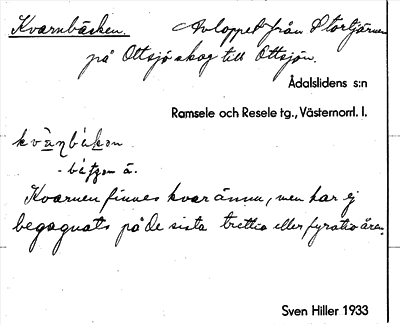 Kvarnbäcken. Avloppet från Stortjärnen
på Ottsjö skog till Ottsjön.
Ådalslidens s:n
Ramsele och Resele tg., Västernorrl. l.
Kvarnen finnes kvar ännu, men har ej
begagnats på de sista trettio eller fyratio åren.
Sven Hiller 1933